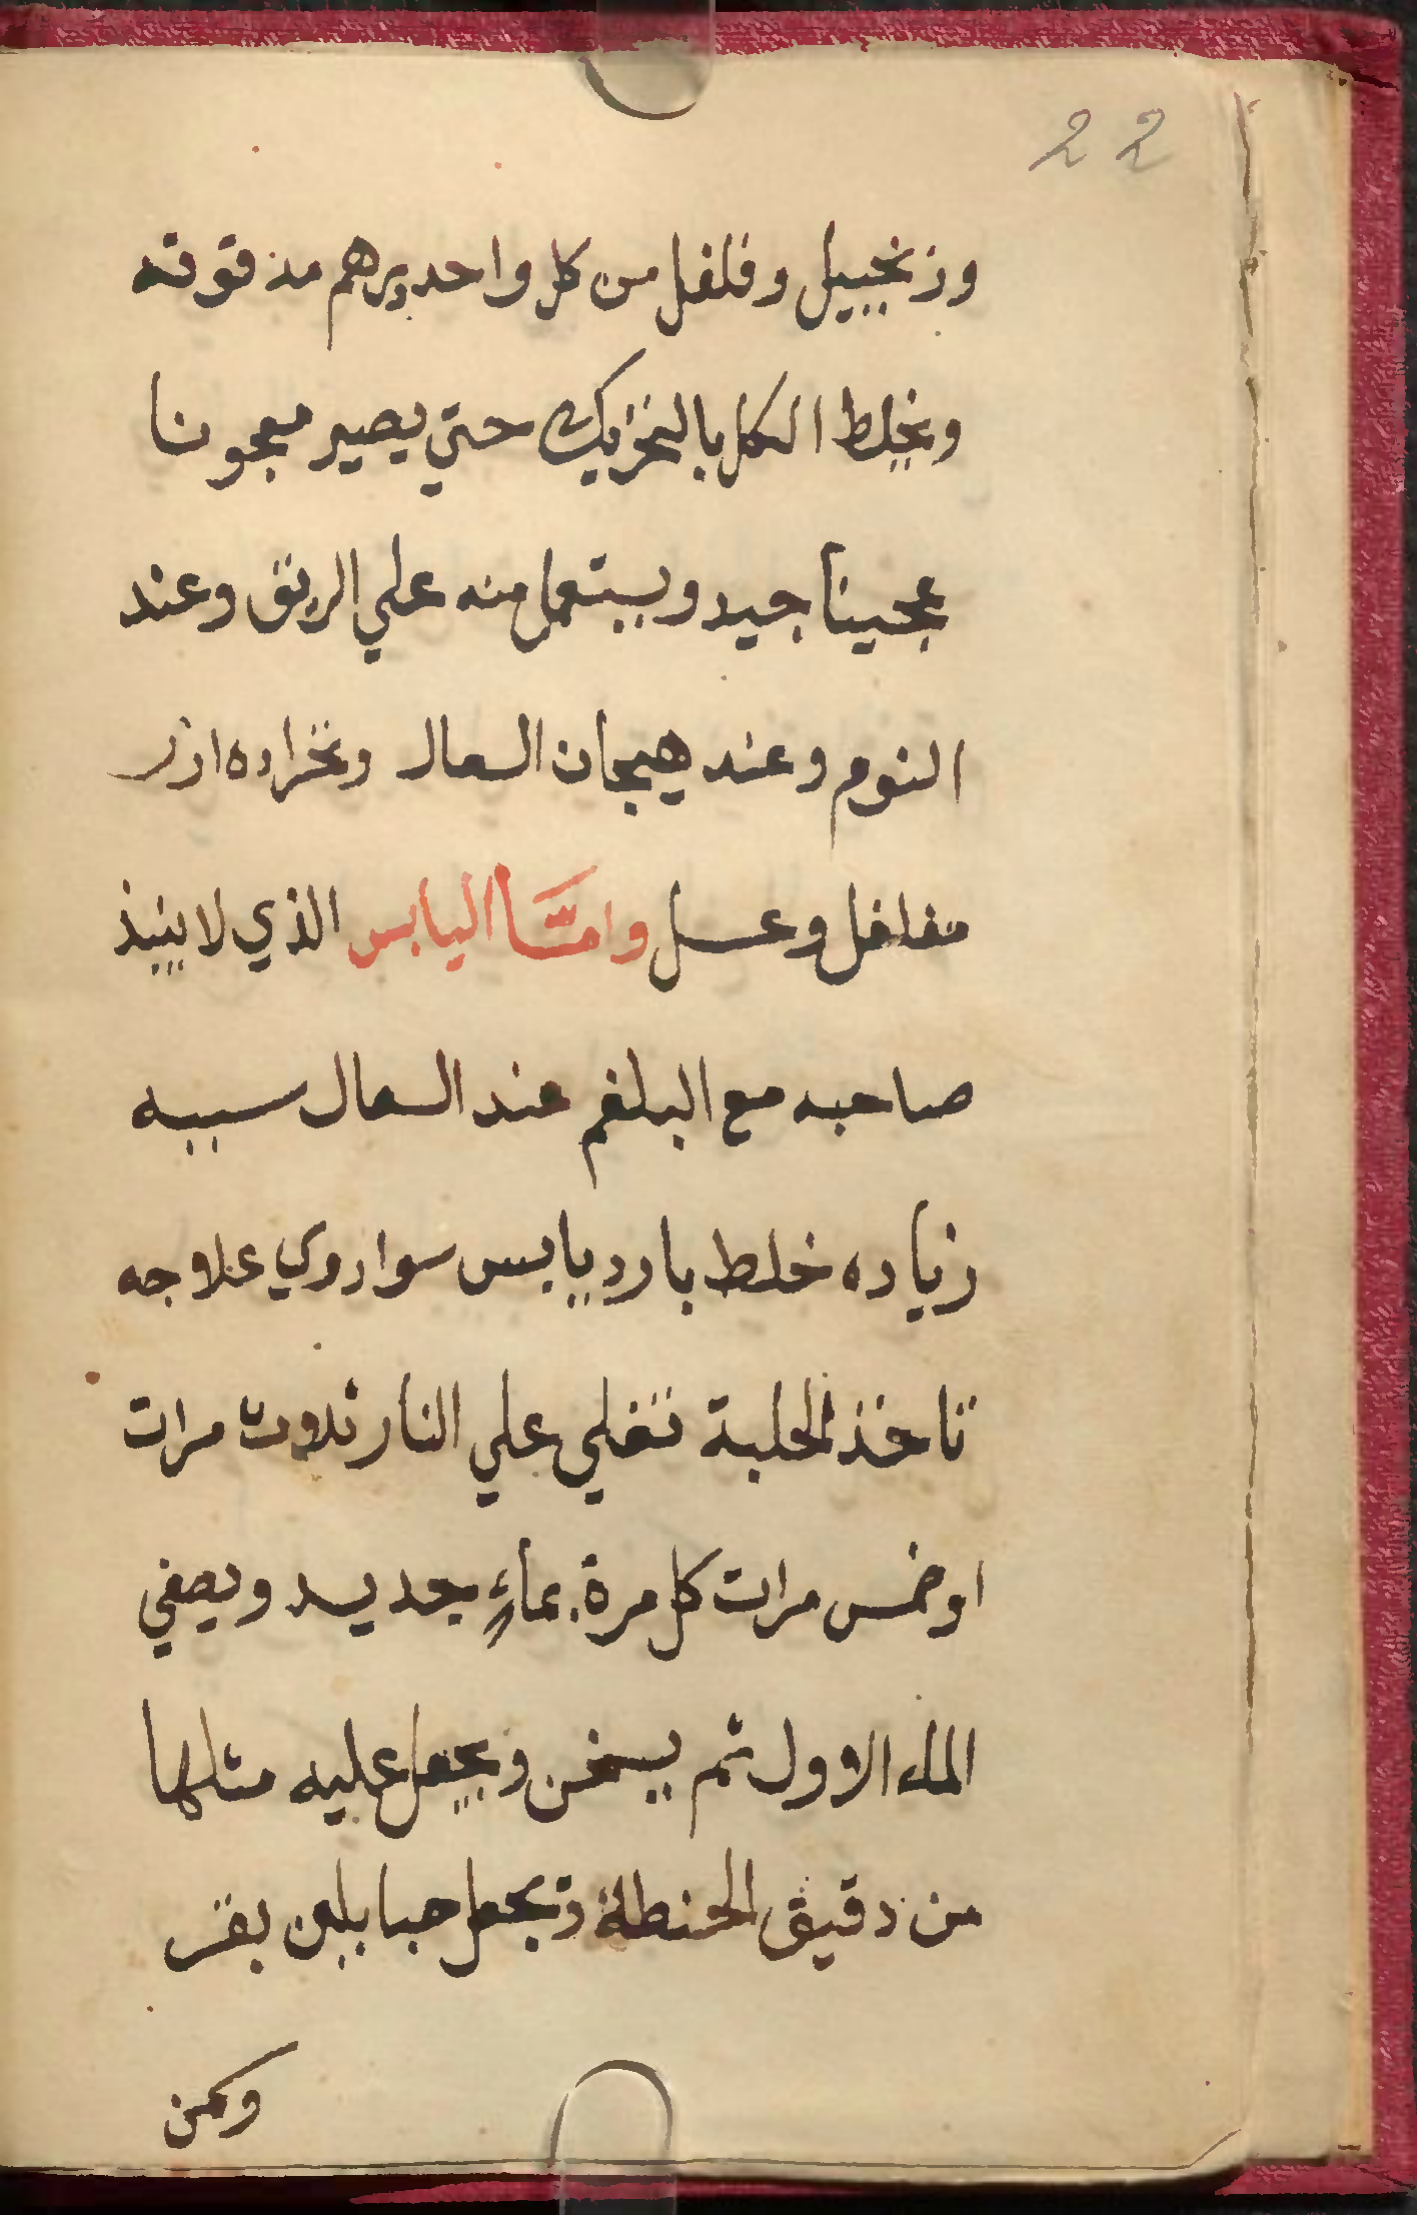 22
وزنجبيل وفلفل من كل واحد درهم مدقوقه
ويخلط الكل بالتحريك حتي يصير معجونا
عجينا جيد ويستعمل منه علي الريق وعند
النوم وعند هيجان السعال ارز
مفلفل وعسل وامّا اليابس الذي لا ينبذ
صاحبه مع البلغم عند السعال سببه
زياده خلط بارد يابس سواروي علاجه
تاخذ الحلبة تغلي علي النار ثلاوث مرات
اوخمس مرات كل مرة بماءٍ جديد ويصفي
الماء الاوول ثم يسخن ويجعل عليه مثلها
من دقيق الحنطة وتجعل حبا بلبن بقر
وكمن